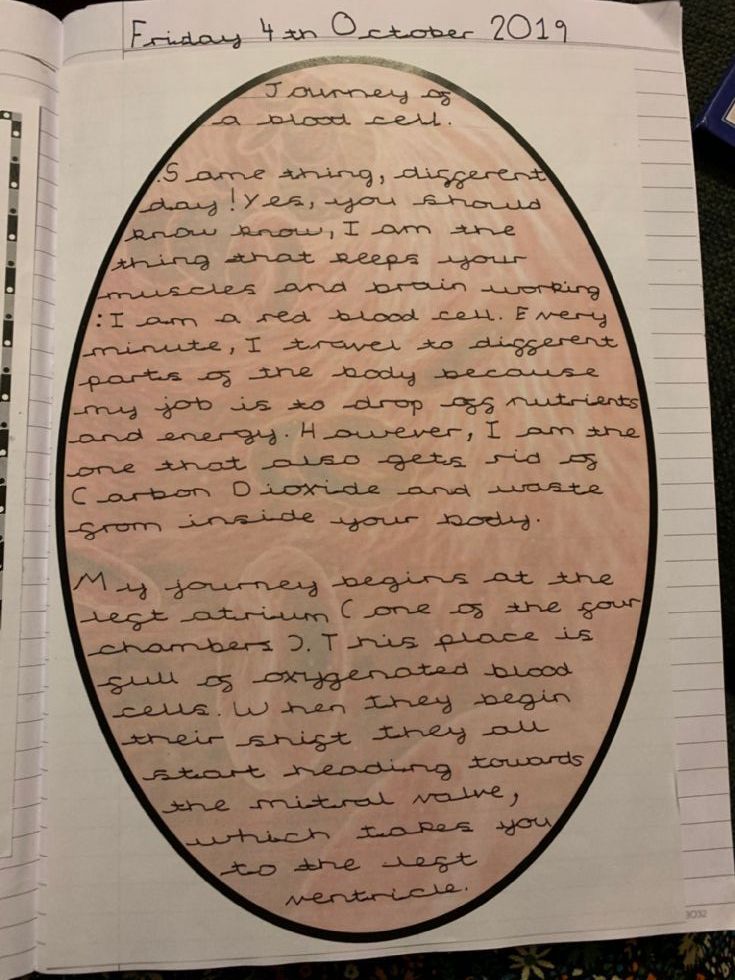 Friday 4th October 2019
Journey of
a blood cell.
Same thing, different
day! Yes, you should
know know, I am the
thing that keeps your
muscles and brain working
: I am a red blood cell. Every
minute, I travel to different
parts of the body because
my job is to drop off nutrients
and energy. However, I am the
one that also gets rid of
Carbon Dioxide and waste
from inside your body.
My journey begins at the
left atrium (one of the four
chambers). This place is
full of oxygenated blood
cells. When they begin
their shift they all
start heading towards
the mitral valve,
which takes you
to the left
ventricle.
3032